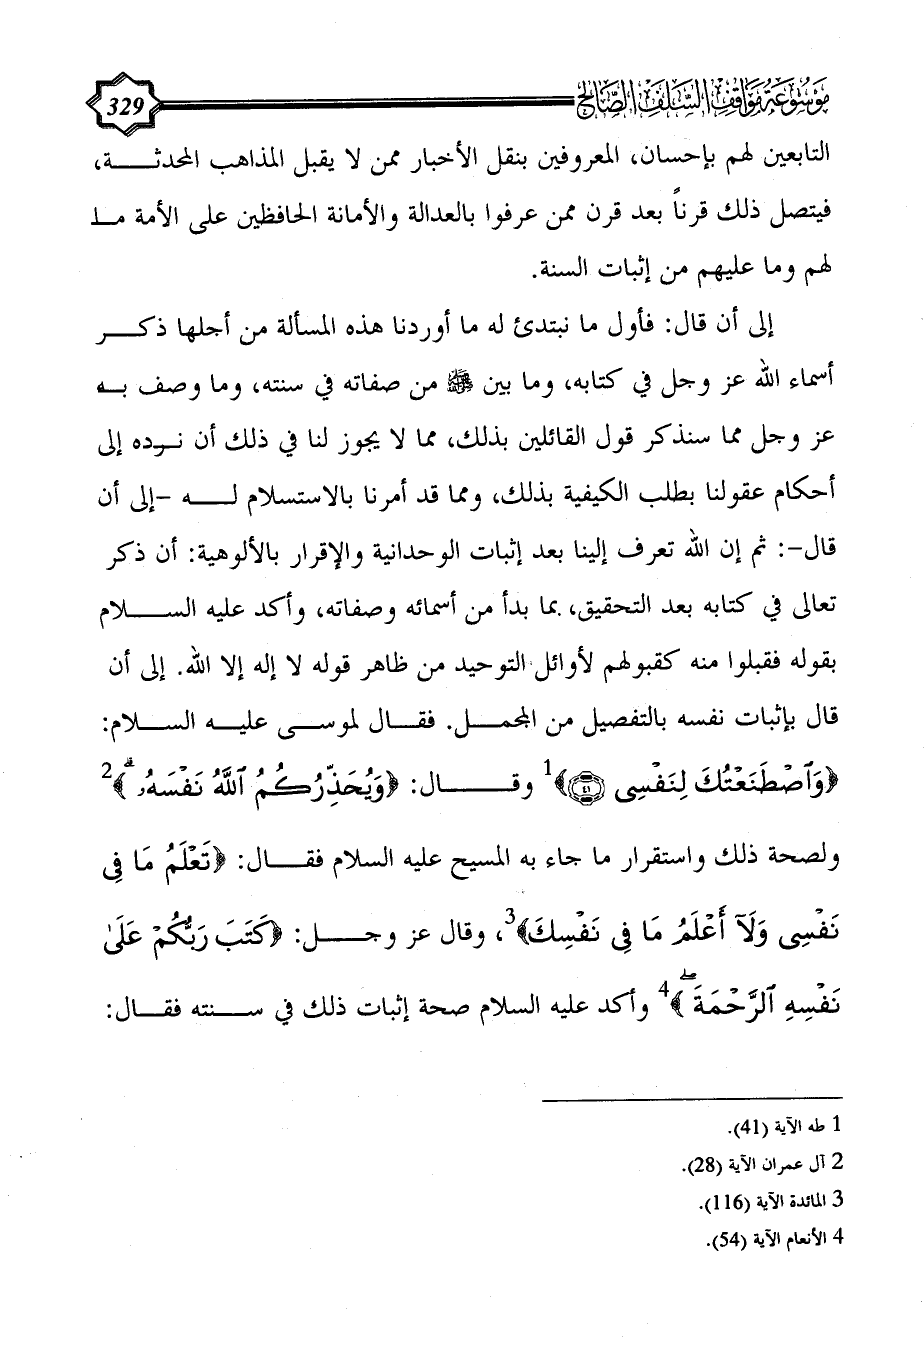 موسوعة مواقف السلف الصالح
329
التابعين لهم بإحسان، المعروفين بنقل الأخبار ممن لا يقبل المذاهب المحدثـــة،
فيتصل ذلك قرناً بعد قرن ممن عرفوا بالعدالة والأمانة الحافظين على الأمة مـا
لهم وما عليهم من إثبات السنة.
إلى أن قال: فأول ما نبتدئ له ما أوردنا هذه المسألة من أجلها ذكـــر
أسماء الله عز وجل في كتابه، وما بين ﷺ من صفاته في سنته، وما وصف بـه
عز وجل مما سنذكر قول القائلين بذلك، مما لا يجوز لنا في ذلك أن نـرده إلى
أحكام عقولنا بطلب الكيفية بذلك، ومما قد أمرنا بالاستسلام لـــه -إلى أن
قال-: ثم إن الله تعرف إلينا بعد إثبات الوحدانية والإقرار بالألوهية: أن ذكر
تعالى في كتابه بعد التحقيق، بما بدأ من أسمائه وصفاته، وأكد عليه الســـلام
بقوله فقبلوا منه كقبولهم لأوائل التوحيد من ظاهر قوله لا إله إلا الله. إلى أن
قال بإثبات نفسه بالتفصيل من المجمل. فقـــال لموســـى عليـــه الســـلام:
﴿وَٱصْطَنَعْتُكَ لِنَفْسِى ٤١﴾1 وقـــــال: ﴿وَيُحَذِّرُكُمُ ٱللَّهُ نَفْسَهُۥۗ﴾2
ولصحة ذلك واستقرار ما جاء به المسيح عليه السلام فقـــال: ﴿تَعْلَمُ مَا فِى
نَفْسِى وَلَآ أَعْلَمُ مَا فِى نَفْسِكَ﴾3، وقال عز وجـــل: ﴿كَتَبَ رَبُّكُمْ عَلَىٰ
نَفْسِهِ ٱلرَّحْمَةَۖ﴾4 وأكد عليه السلام صحة إثبات ذلك في ســـنته فقـــال:
1 طه الآية (41).
2 آل عمران الآية (28).
3 المائدة الآية (116).
4 الأنعام الآية (54).